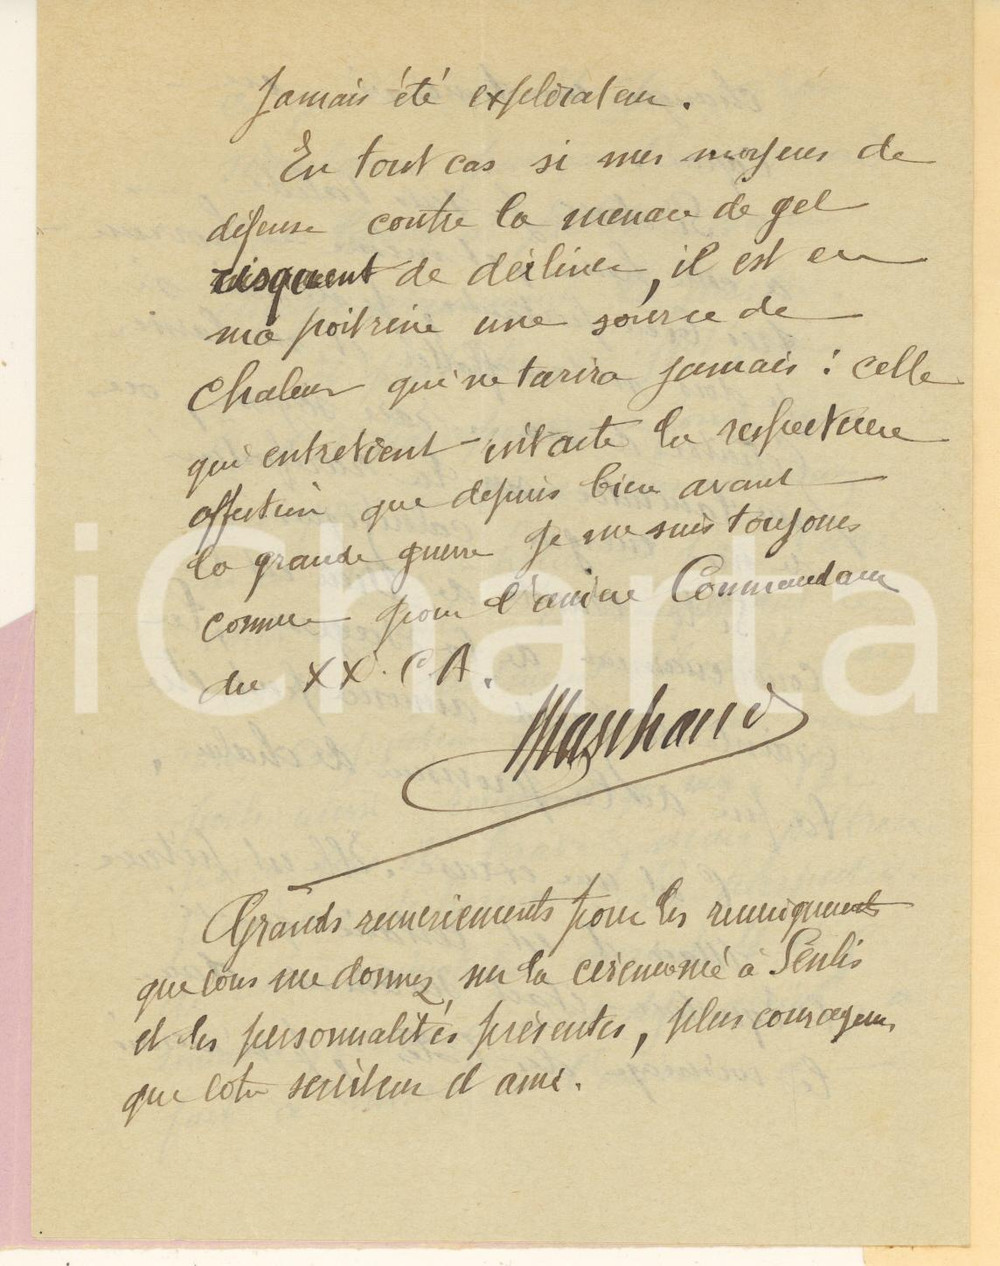 Jamais été explorateur.
En tout cas si mes moyens de
défense contre la menace de gel
risquent de décliner, il est en
ma poitrine une source de
chaleur qui ne tarira jamais : celle
qui entretient intacte la respectueuse
affection que depuis bien avant
la grande guerre je me suis toujours
connue pour l'ancien Commandant
du XX. C.A.
Marchand
Grands remerciements pour les renseignements
que vous me donnez, sur la cérémonie à Senlis
et les personnalités présentes, plus courageuses
que votre serviteur et ami.
iCharta